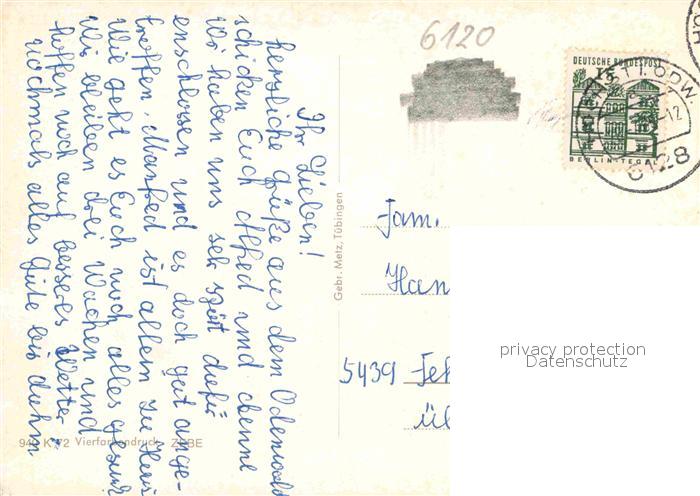 6120
DEUTSCHE BUNDESPOST
15
BERLIN-TEGEL
I. ODW
-12
6128
Ihr Lieben!
herzliche Grüße aus dem Odenwald
schicken Euch Alfred und
Wir haben uns sehr spät dafür
enschlossen und es doch gut ange-
troffen, Manfred ist allein zu Haus
Wie geht es Euch noch alles gesund
Wir bleiben drei Wochen und
hoffen noch auf besseres Wetter
nochmals alles Gute bis dahin
Gebr. Metz, Tübingen
Fam.
Han
5439 Feh
üb
privacy protection
Datenschutz
Vierfarbendruck